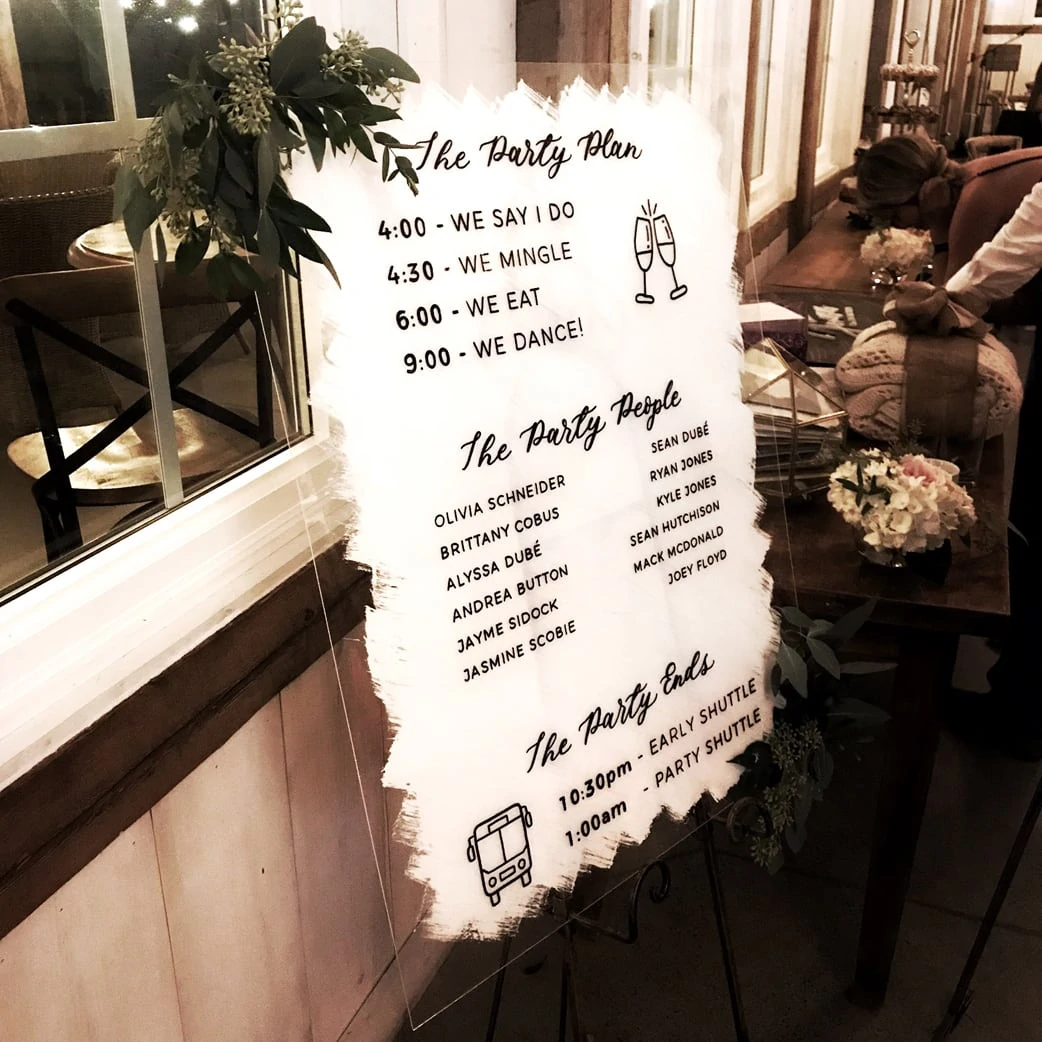 The Party Plan
4:00 - WE SAY I DO
4:30 - WE MINGLE
6:00 - WE EAT
9:00 - WE DANCE!
The Party People
OLIVIA SCHNEIDER
BRITTANY COBUS
ALYSSA DUBÉ
ANDREA BUTTON
JAYME SIDOCK
JASMINE SCOBIE
SEAN DUBÉ
RYAN JONES
KYLE JONES
SEAN HUTCHISON
MACK MCDONALD
JOEY FLOYD
The Party Ends
10:30pm - EARLY SHUTTLE
1:00am - PARTY SHUTTLE